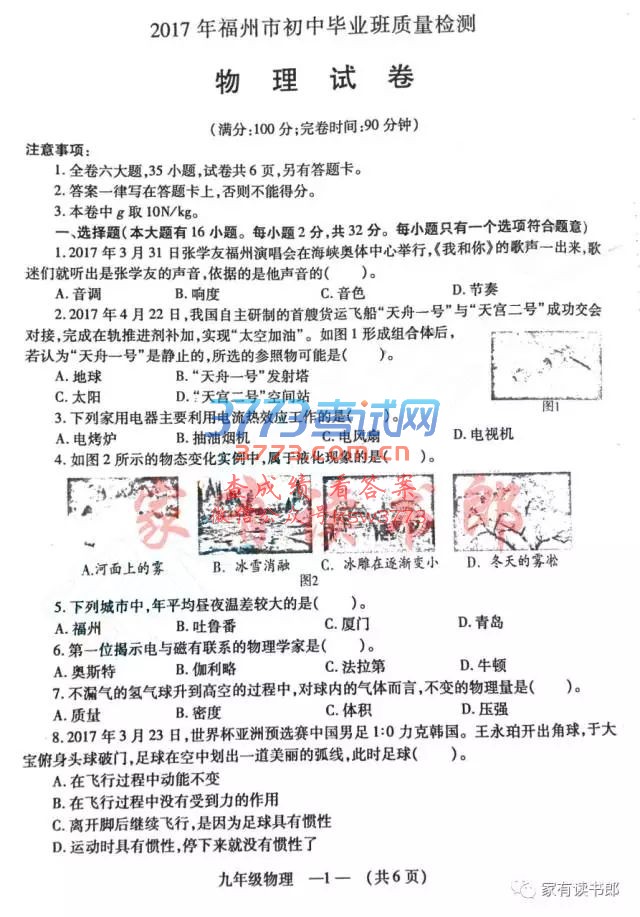 2017年福州市初中毕业班质量检测
物 理 试 卷
(满分:100分;完卷时间:90分钟)
注意事项:
1.全卷六大题,35小题,试卷共6页,另有答题卡。
2.答案一律写在答题卡上,否则不能得分。
3.本卷中g取10N/kg。
一、选择题(本大题有16小题。每小题2分,共32分。每小题只有一个选项符合题意)
1.2017年3月31日张学友福州演唱会在海峡奥体中心举行,《我和你》的歌声一出来,歌
迷们就听出是张学友的声音,依据的是他声音的( )。
A.音调 B.响度 C.音色 D.节奏
2.2017年4月22日,我国自主研制的首艘货运飞船“天舟一号”与“天宫二号”成功交会
对接,完成在轨推进剂补加,实现“太空加油”。如图1形成组合体后,
若认为“天舟一号”是静止的,所选的参照物可能是( )。
A.地球 B.“天舟一号”发射塔
C.太阳 D.“天宫二号”空间站
图1
3.下列家用电器主要利用电流热效应工作的是( )。
A.电烤炉 B.抽油烟机 C.电风扇 D.电视机
4.如图2所示的物态变化实例中,属于液化现象的是( )。
3773考试网
3773.com.cn
查成绩 看答案
家有读书郎
A.河面上的雾 B.冰雪消融 C.冰雕在逐渐变小 D.冬天的雾凇
图2
5.下列城市中,年平均昼夜温差较大的是( )。
A.福州 B.吐鲁番 C.厦门 D.青岛
6.第一位揭示电与磁有联系的物理学家是( )。
A.奥斯特 B.伽利略 C.法拉第 D.牛顿
7.不漏气的氢气球升到高空的过程中,对球内的气体而言,不变的物理量是( )。
A.质量 B.密度 C.体积 D.压强
8.2017年3月23日,世界杯亚洲预选赛中国男足1:0力克韩国。王永珀开出角球,于大
宝俯身头球破门,足球在空中划出一道美丽的弧线,此时足球( )。
A.在飞行过程中动能不变
B.在飞行过程中没有受到力的作用
C.离开脚后继续飞行,是因为足球具有惯性
D.运动时具有惯性,停下来就没有惯性了
九年级物理 —1— (共6页)
家有读书郎